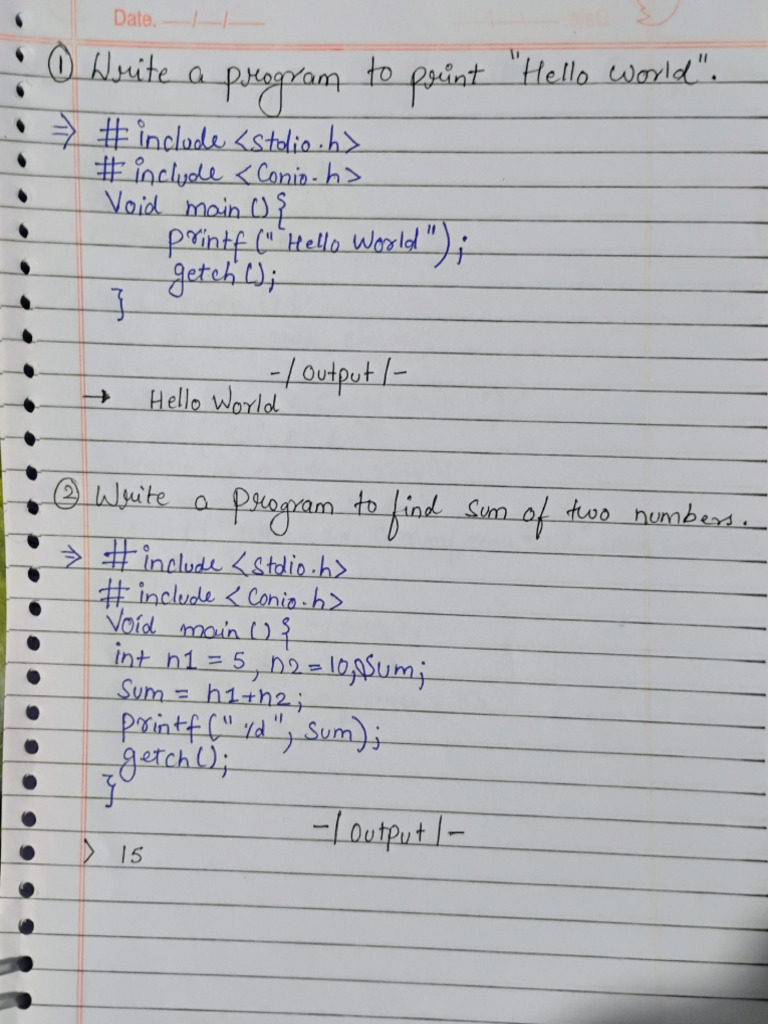 Date. —/—/—
① Write a program to print "Hello world".
⇒ # include <stdio.h>
# include <Conio.h>
Void main () {
printf (" Hello World");
getch ();
}
-/ output /-
→ Hello World
② Write a program to find sum of two numbers.
⇒ # include <stdio.h>
# include < Conio.h>
Void main () {
int n1 = 5, n2 = 10, Sum;
Sum = n1+n2;
printf (" %d", Sum);
getch ();
}
-/ output /-
> 15